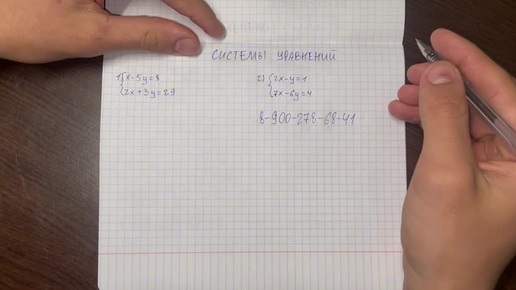 СИСТЕМЫ УРАВНЕНИЙ
1) { x-5y=8
2x+3y=29
2) { 2x-y=1
7x-6y=4
8-900-278-68-41